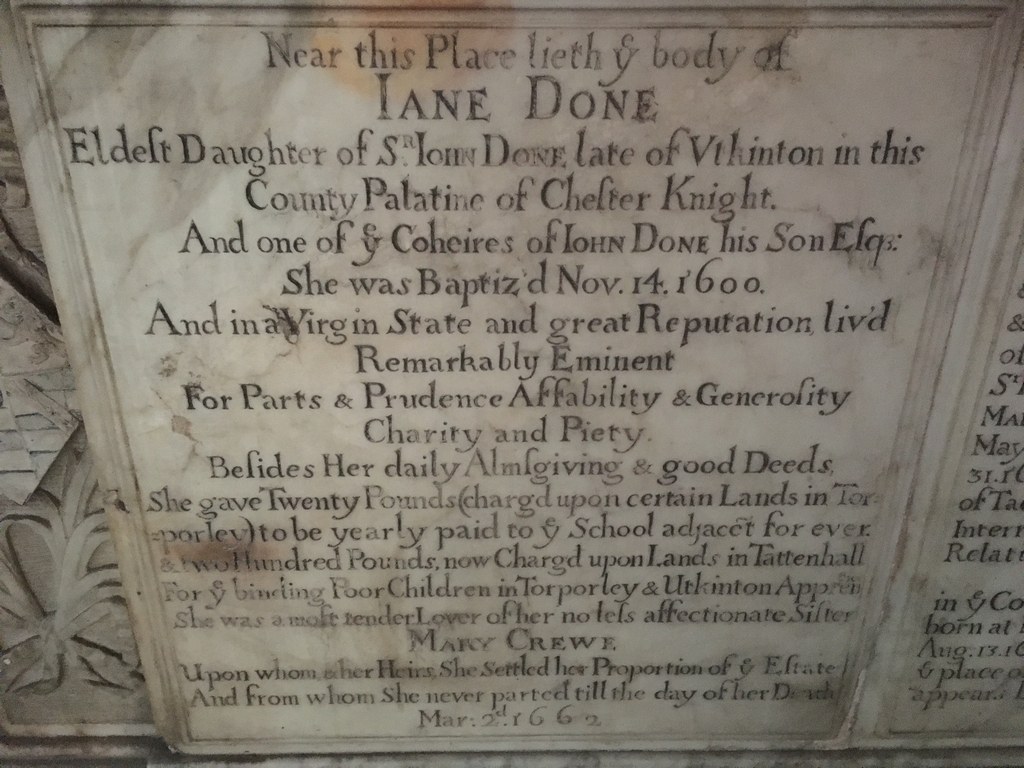 Near this Place lieth yͤ body of
IANE DONE
Eldeſt Daughter of Sᴿ IOHN DONE, late of Vtkinton in this
County Palatine of Cheſter Knight.
And one of yͤ Coheires of IOHN DONE his Son Eſqꝫ:
She was Baptiz'd Nov. 14. 1600.
And in a Virgin State and great Reputation, liv'd
Remarkably Eminent
For Parts & Prudence Affability & Generoſity
Charity and Piety.
Beſides Her daily Almſgiving & good Deeds,
She gave Twenty Pounds (chargd upon certain Lands in Tor=
=porley) to be yearly paid to yͤ School adjacēt for ever.
& two Hundred Pounds, now Chargd upon Lands in Tattenhall
For yͤ binding Poor Children in Torporley & Utkinton
She was a moſt tender Lover of her no leſs affectionate Siſter
MARY CREWE
Upon whom & her Heirs, She Settled her Proportion of yͤ Eſtate
And from whom She never parted till the day of her Death
Mar: 2ᵈ. 1662
&
of
May
31.
of
Interr
Relat
in yͤ Co
born at
Aug. 13. 16
& place o
appear: